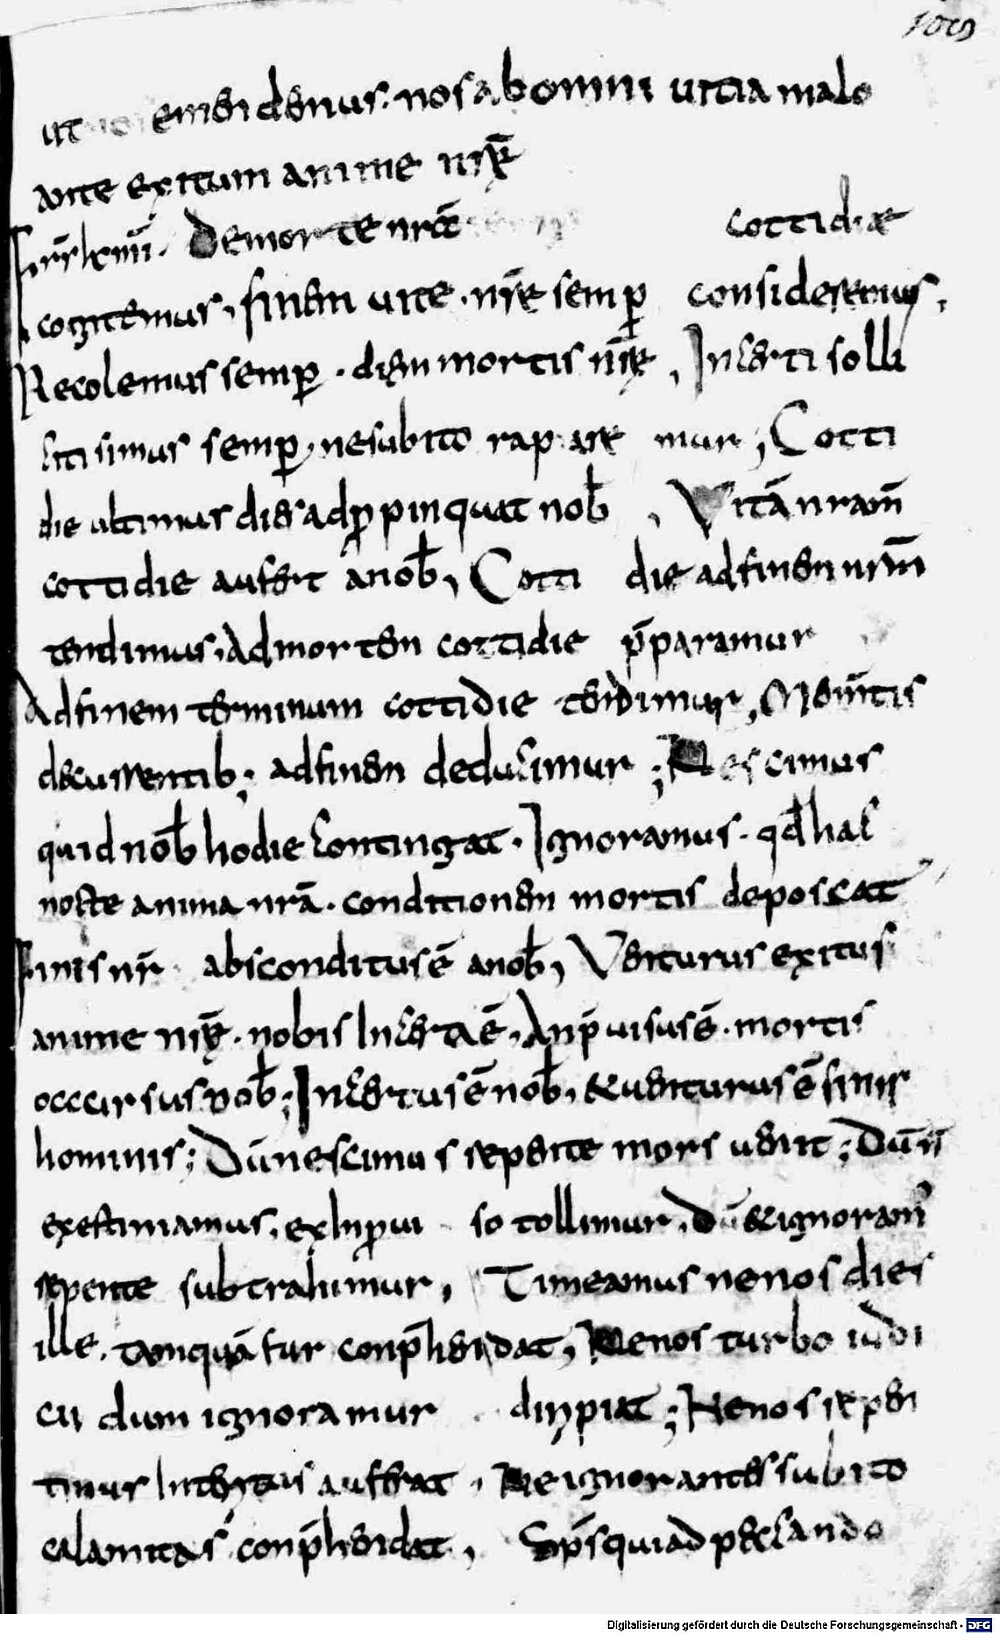 109
ut emendemus nos ab omni uitia malo
ante exitum anime nrȩ̄
De morte nrā cottidiæ
cogitemus, finem uite nrē semꝑ consideremus,
Recolemus semꝑ · diem mortis nrȩ̄, Incerti solli
citi simus semꝑ, ne subito rapiare mur, Cotti
die ultimus dies adꝓpinquat nob̄, Vitā nram̄
cottidie aufert a nob̄, Cotti die ad finem nrm̄
tendimus, Ad mortem cottidie p̄paramur
Ad finem terminum cottidie tendimur, Momtis
decurrentib; ad finem deducimur; Nescimus
quid nob̄ hodie contingat · Ignoramus · qd̄ hac
nocte anima nrā · conditionem mortis deposcat
Finis nr̄ absconditus ē a nob̄, Venturus exitus
anime nrȩ̄ · nobis Incerta ē, Inp̄uisus ē · mortis
occursus nob̄; Incertus ē nob̄, & uenturus ē finis
hominis; Dū nescimus repente mors uenit; Dū n̄
exestimamus, ex Inꝓui so tollimur, dū & ignoram̄
repente subtrahimur, Timeamus ne nos dies
ille, tanquā fur conp̄hendat, Ne nos turbo iudi
cii dum ignoramur diripiat; Ne nos repen
tinus Interitus auferat, Ne ignorantes subito
calamitas conp̄hendat, Sep̄s qui ad peccando
Digitalisierung gefördert durch die Deutsche Forschungsgemeinschaft - DFG